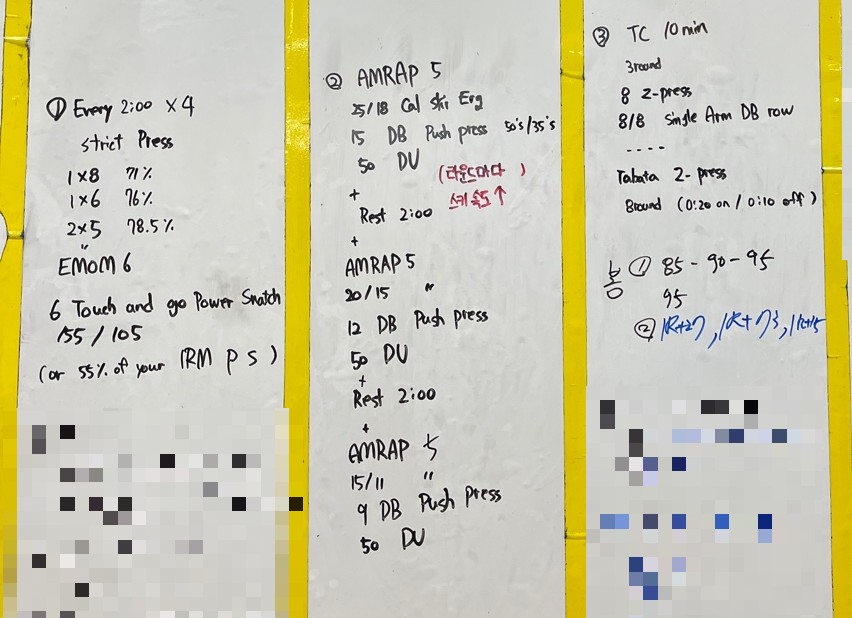 ① Every 2:00 x 4
strict Press
1 x 8 71%
1 x 6 76%
2 x 5 78.5%
"
EMOM 6
6 Touch and go Power Snatch
155 / 105
(or 55% of your 1RM P S)
② AMRAP 5
25/18 Cal Ski Erg
15 DB Push press 50's/35's
50 DU
(라운드마다 )
스키 속도 ↑
+
Rest 2:00
+
AMRAP 5
20/15 "
12 DB Push press
50 DU
+
Rest 2:00
+
AMRAP 5
15/11 "
9 DB Push Press
50 DU
③ TC 10 min
3round
8 Z-press
8/8 Single Arm DB row
----
Tabata Z-press
8round (0:20 on / 0:10 off)
홍 ① 85 - 90 - 95
95
② 1R+27, 1R+73,